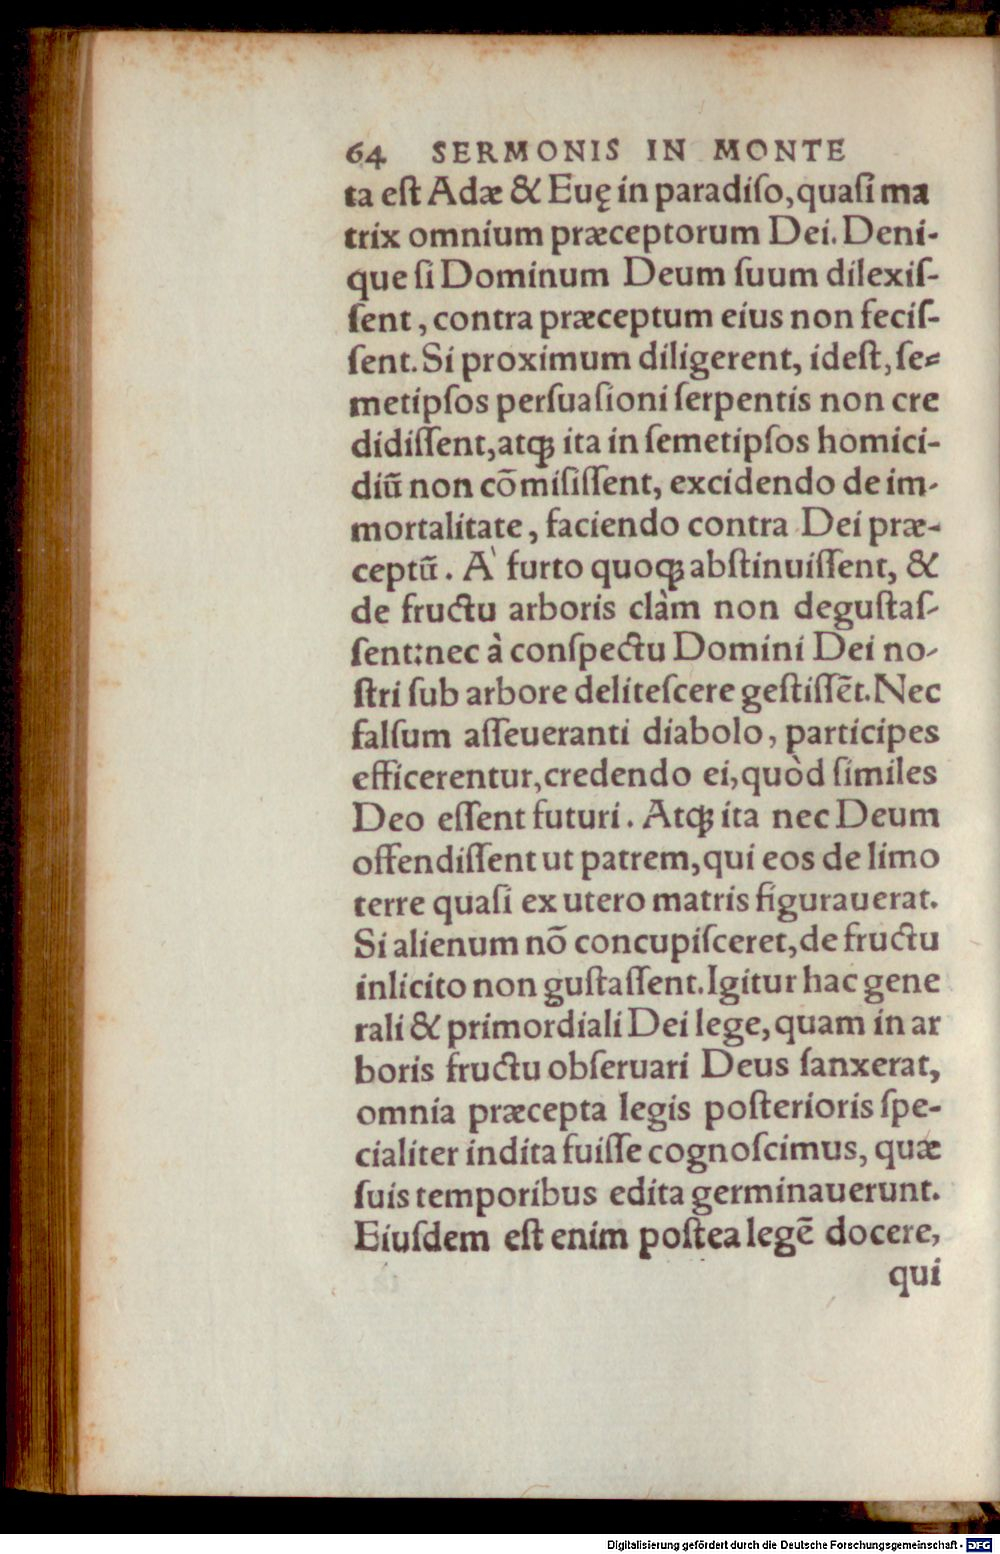 64 SERMONIS IN MONTE
ta eſt Adæ & Euę in paradiſo, quaſi ma
trix omnium præceptorum Dei. Deni-
que ſi Dominum Deum ſuum dilexiſ-
ſent, contra præceptum eius non feciſ-
ſent. Si proximum diligerent, ideſt, ſe-
metipſos perſuaſioni ſerpentis non cre
didiſſent, atqꝫ ita in ſemetipſos homici-
diū non cōmiſiſſent, excidendo de im-
mortalitate, faciendo contra Dei præ-
ceptū. A` furto quoqꝫ abſtinuiſſent, &
de fructu arboris clàm non deguſtaſ-
ſent: nec à conſpectu Domini Dei no-
ſtri ſub arbore deliteſcere geſtiſſēt. Nec
falſum aſſeueranti diabolo, participes
efficerentur, credendo ei, quòd ſimiles
Deo eſſent futuri. Atqꝫ ita nec Deum
offendiſſent ut patrem, qui eos de limo
terre quaſi ex utero matris figurauerat.
Si alienum nō concupiſceret, de fructu
inlicito non guſtaſſent. Igitur hac gene
rali & primordiali Dei lege, quam in ar
boris fructu obſeruari Deus ſanxerat,
omnia præcepta legis poſterioris ſpe-
cialiter indita fuiſſe cognoſcimus, quæ
ſuis temporibus edita germinauerunt.
Eiuſdem eſt enim poſtea legē docere,
qui
Digitalisierung gefördert durch die Deutsche Forschungsgemeinschaft - DFG